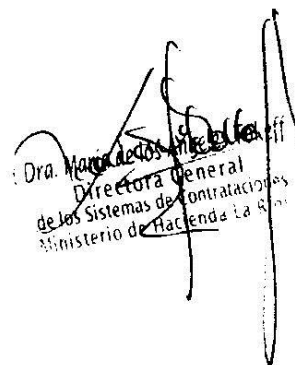 Dra. María de los
Directora General
de los Sistemas de Contrataciones
Ministerio de Hacienda La